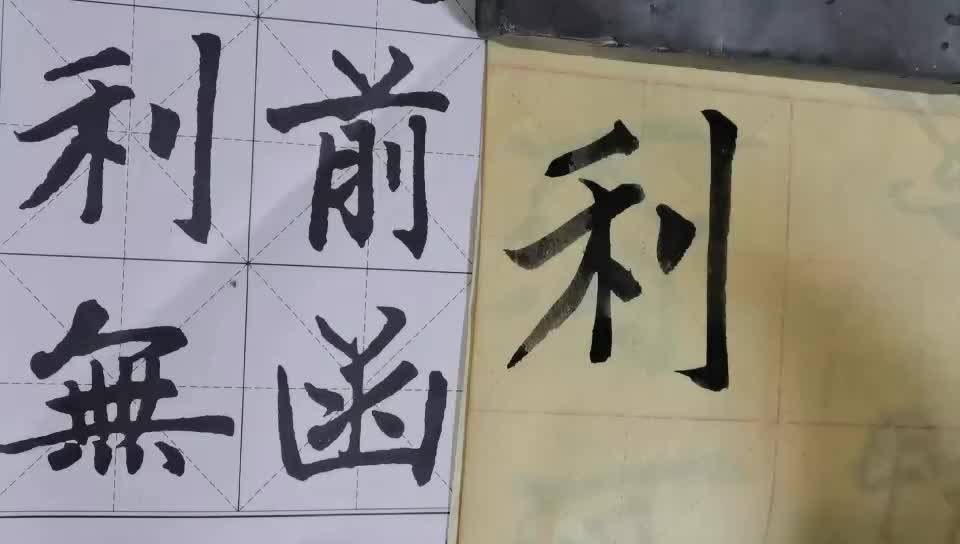 利前
無函
利